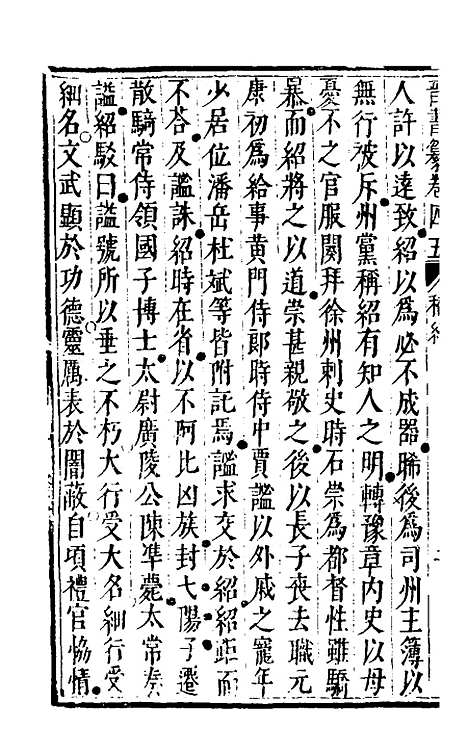 晉書纂卷四五 嵇紹
人許以遠致紹以爲必不成器晞後爲司州主簿以
無行被斥州黨稱紹有知人之明轉豫章内史以母
憂不之官服闋拜徐州刺史時石崇爲都督性雖驕
暴而紹將之以道崇甚親敬之後以長子喪去職元
康初爲給事黃門侍郎時侍中賈謐以外戚之寵年
少居位潘岳杜斌等皆附託焉謐求交於紹紹距而
不荅及謐誅紹時在省以不阿比凶族封弋陽子遷
散騎常侍領國子博士太尉廣陵公陳準薨太常奏
謚紹駁曰謚號所以垂之不朽大行受大名細行受
細名文武顯於功德靈厲表於闇蔽自頃禮官恊情